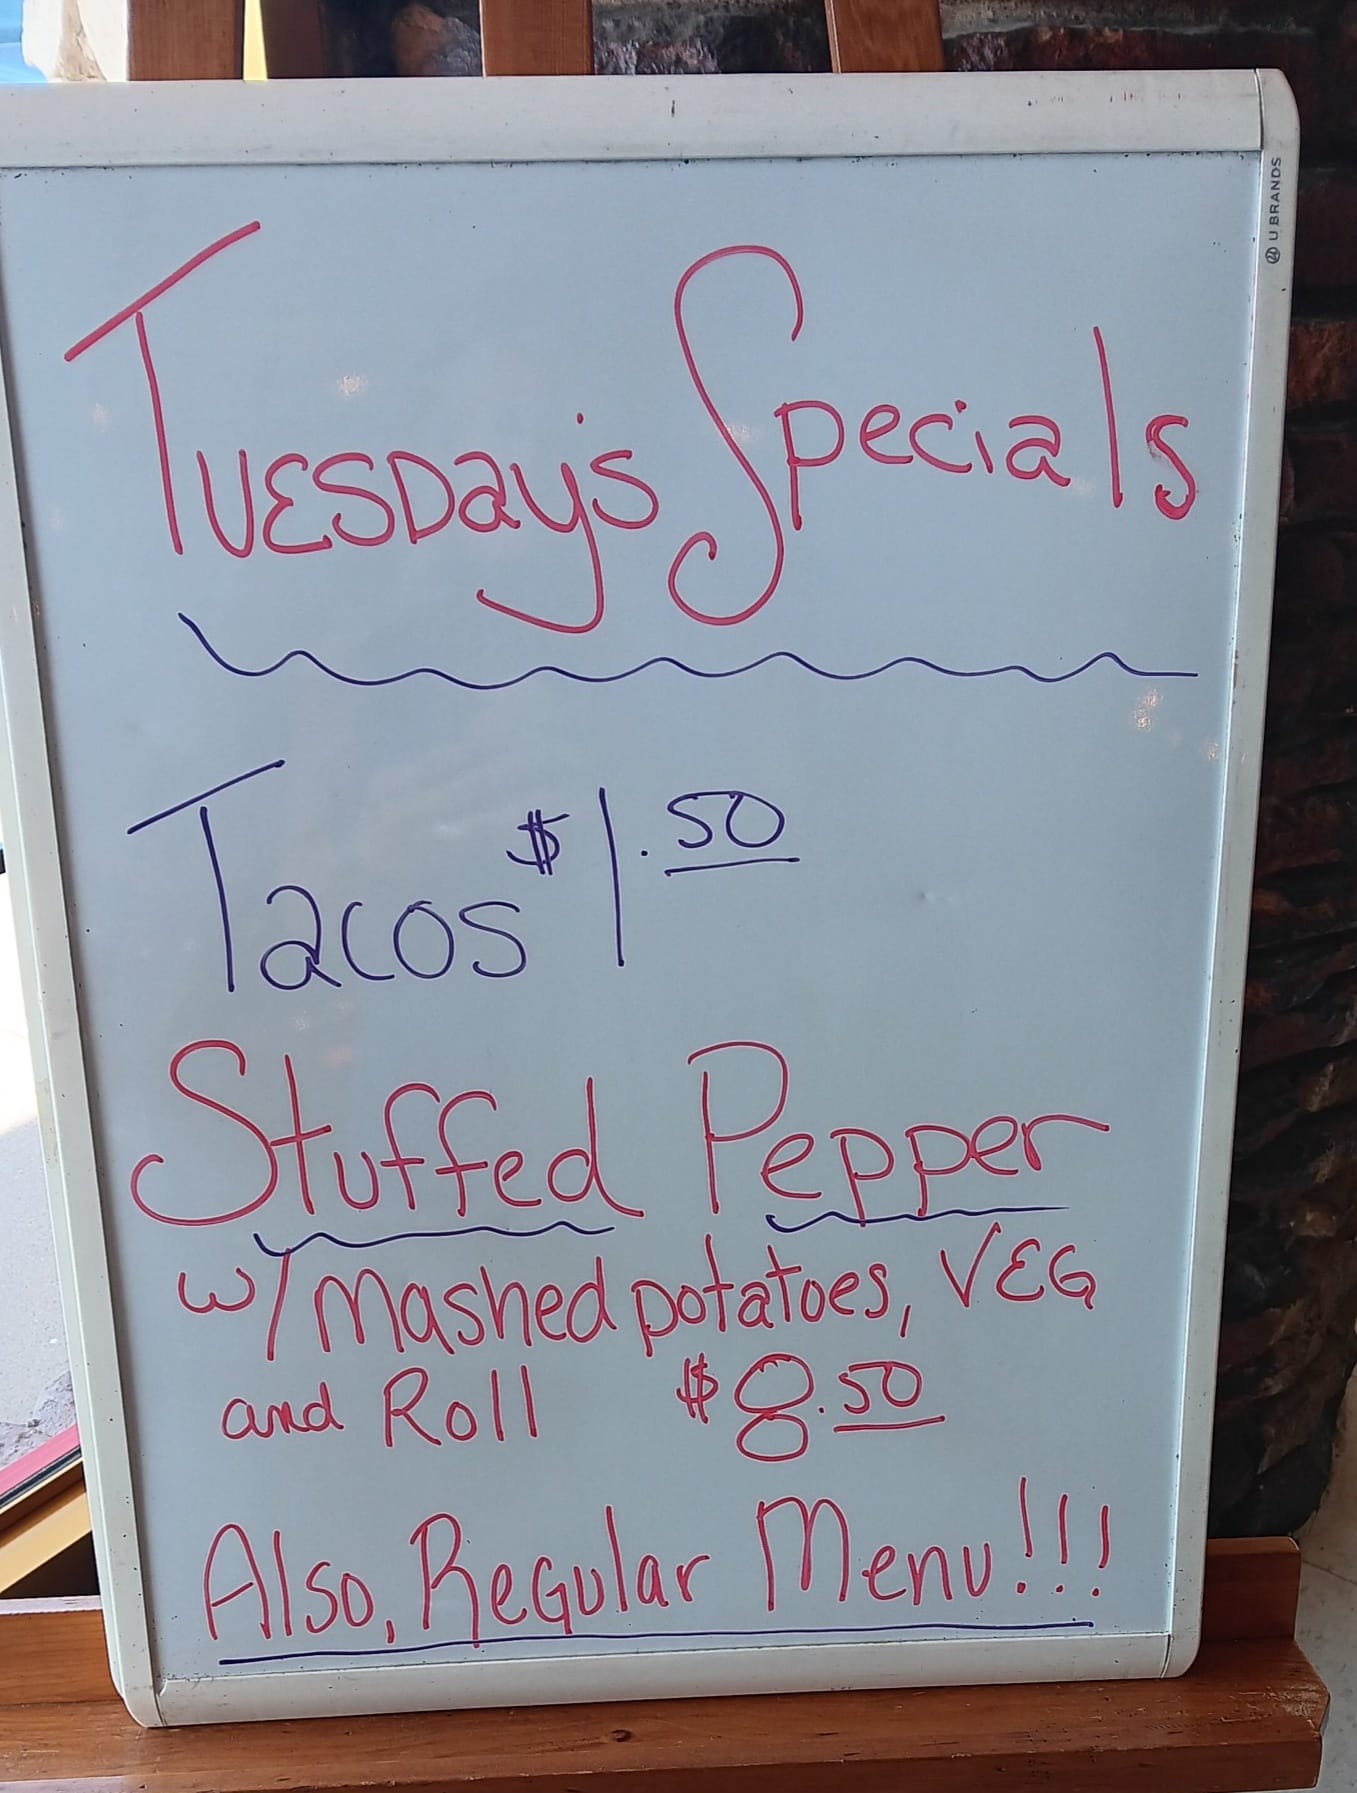 Tuesday's Specials
Tacos $1.50
Stuffed Pepper
w/ Mashed potatoes, VEG
and Roll $8.50
Also, Regular Menu!!!
U BRANDS